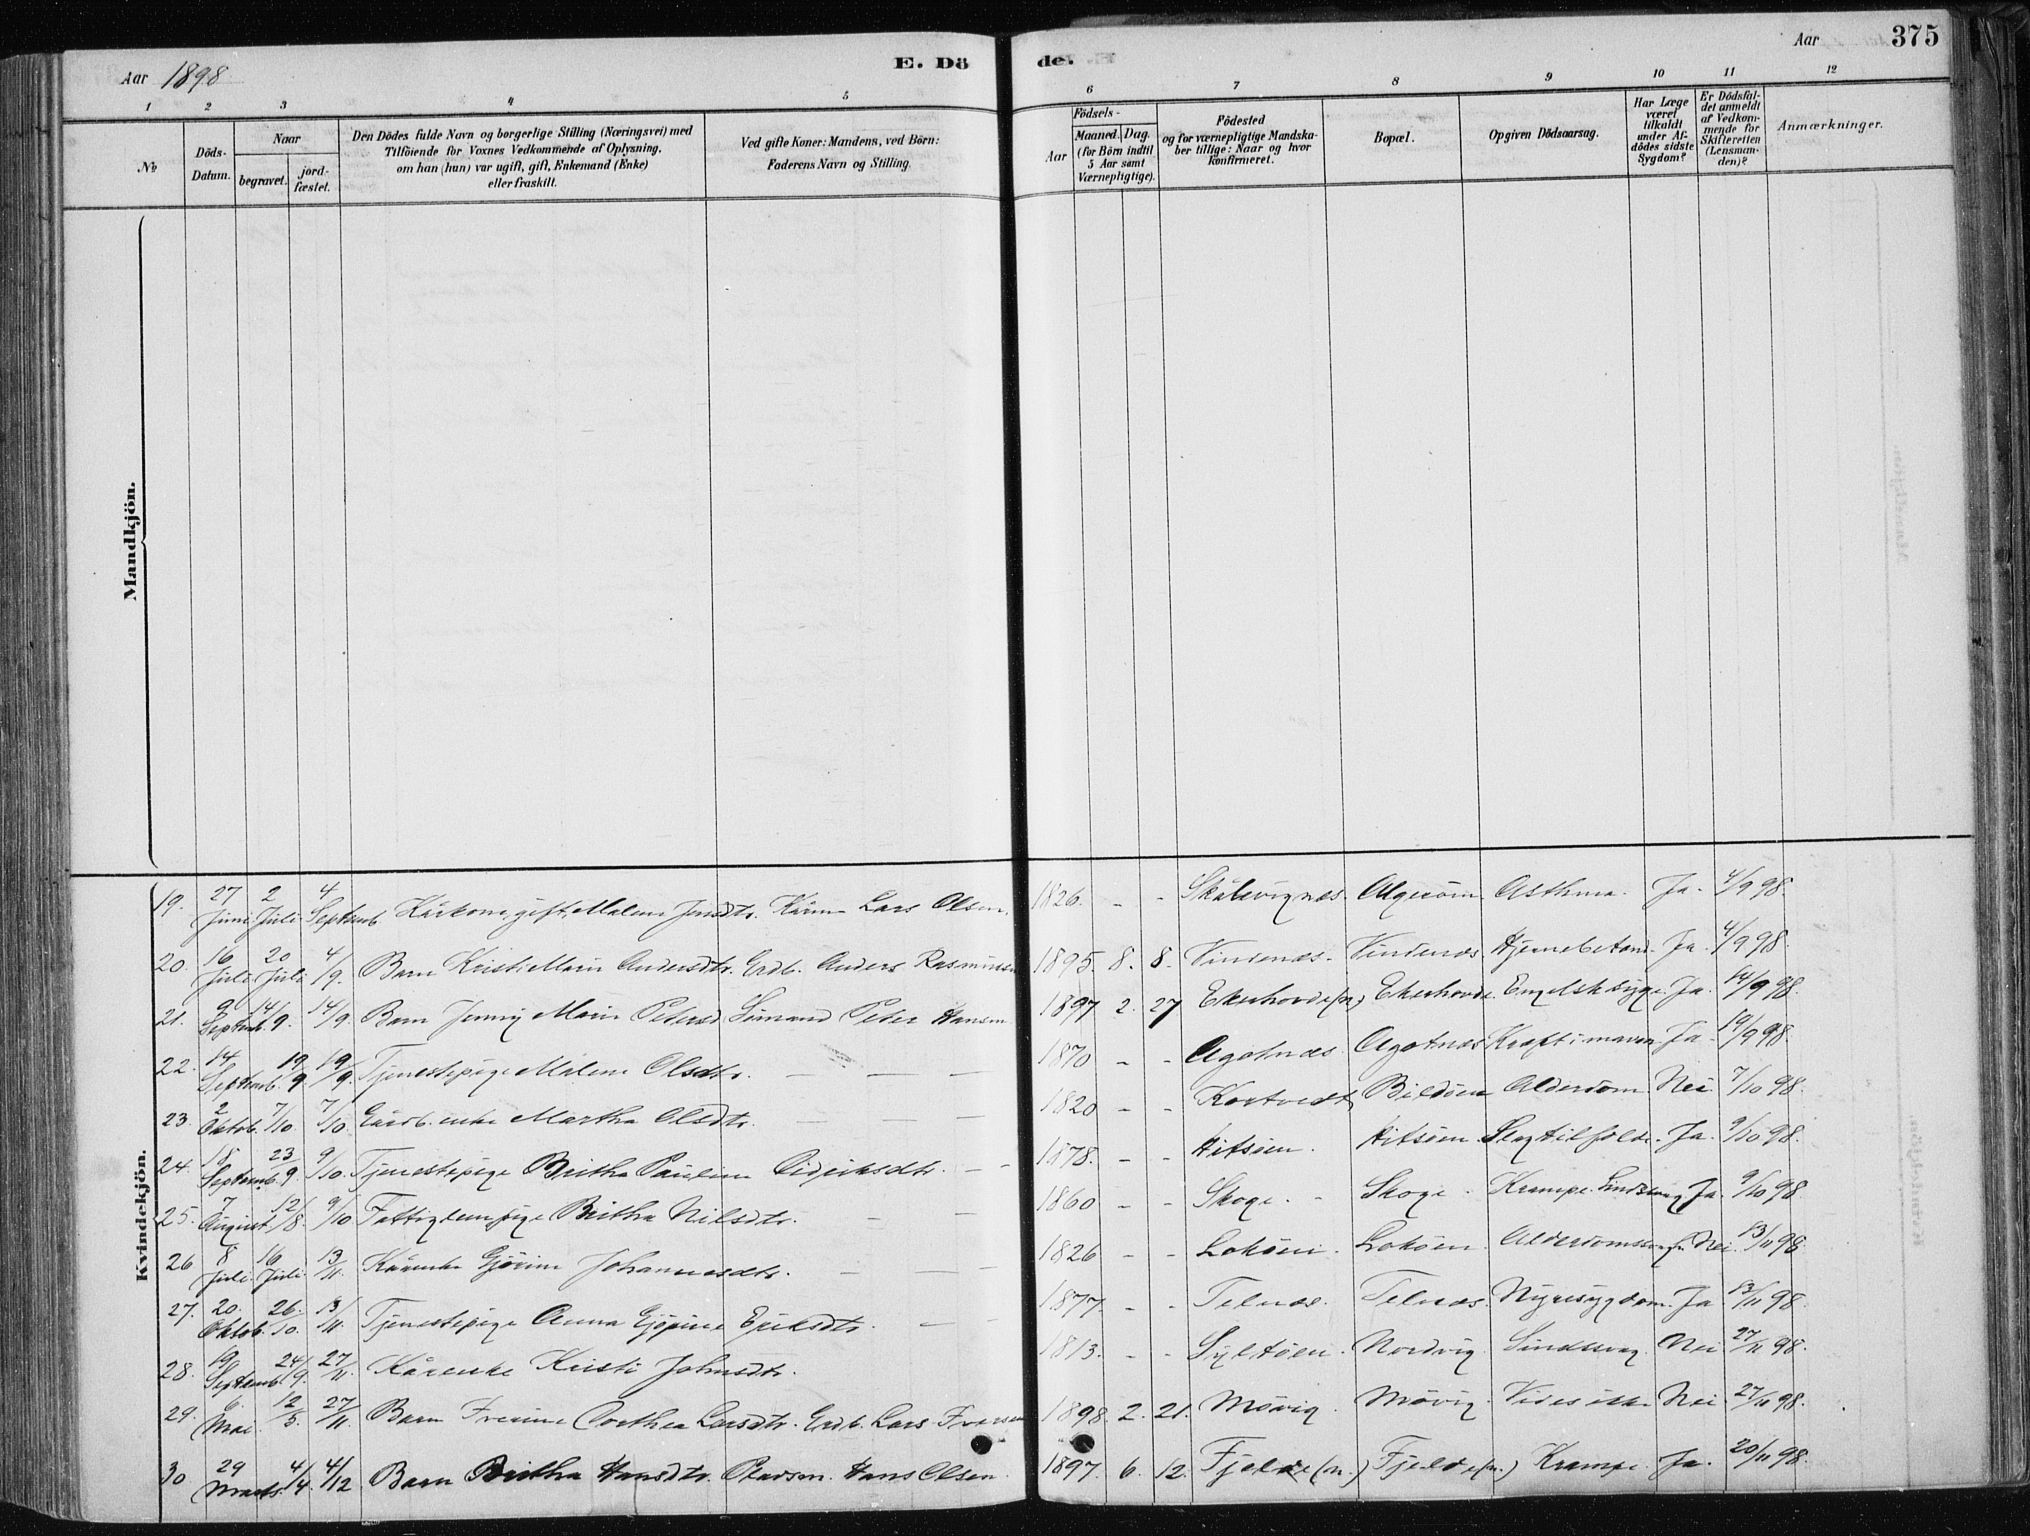 Aar 1898
E. Dö de.
Aar
375
1 2 3 4 5 6 7 8 9 10 11 12
No
Döds-Datum.
Naar
begravet.
jord-fæstet.
Den Dödes fulde Navn og borgerlige Stilling (Næringsvei) med
Tilföiende for Voxnes Vedkommende af Oplysning,
om han (hun) var ugift, gift, Enkemand (Enke)
eller fraskilt.
Ved gifte Koner: Mandens, ved Börn:
Faderens Navn og Stilling.
Födsels-
Aar
Maaned. Dag.
(for Börn indtil
5 Aar samt
Værnepligtige).
Födested
og for værnepligtige Mandska-
ber tillige: Naar og hvor
konfirmeret.
Bopæl.
Opgiven Dödsaarsag.
Har Læge
været
tilkaldt
under Af-
dödes sidste
Sygdom?
Er Dödsfal-
det anmeldt
af Vedkom-
mende for
Skifteretten
(Lensman-
den)?
Anmærkninger.
Mandkjön.
Kvindekjön.
19. 27 Juni 2 Juli 4 Septemb Kårkone, gift, Malene Jensdtr. Kårm Lars Olsen. 1826. - - Skålevignes. Algeröm Asthma. Ja. 4/9 98.
20. 16 Juli 20 Juli 4/9. Barn Kristi Marie Andersdtr. Grdb. Anders Rasmussen 1895. 8. 8. Vindenæs. Vindenæs Hjernebetænd. Ja. 4/9 98.
21. 9 Septemb 14/9. 14/9. Barn Jenny Marie Petersd Sömand Peter Hansen 1897 2. 27 Ekerhovde (n.) Ekerhovde. Engelsk syge. Ja. 14/9 98.
22. 14 Septemb. 19/9. 19/9. Tjenestepige Malene Olsdtr. — — — 1870 - - Agotnæs Agotnæs Kræft i maven Ja. 19/9 98.
23. 2 Oktob. 7/10. 7/10. Gårdb. enke Martha Olsdtr. — — 1820 - - Kortvedt Bildöen Alderdom Nei 7/10 98.
24. 18 Septemb. 23/9. 9/10. Tjenestepige Britha Pauline Didriksdtr. - - 1878. - - Hitsöen. Hitsöen Slagtilfælde. Ja. 9/10 98.
25. 7 August 12/8. 9/10 Fattiglem, pige Britha Nilsdtr. — — 1860 - - Skoge. Skoge. Krampe. Sindssvag Ja. 9/10 98
26 8 Juli. 16 Juli. 13/11. Kårenke Gjörine Johannesdtr. — — — 1826 - - Loköen. Loköen Nei. 13/11 98
27. 20. Oktob. 26./10. 13/11. Tjenestepige Anna Gjörine Eriksdtr. — - 1877. - - Telnæs. Telnæs. Nyresygdom. Ja 13/11 98.
28. 19 Septemb 24/9. 27/11. Kårenke Kristi Johnsdtr. 1813. - - Syltöen. Nordvig Sindssvag Nei 27/11 98.
29. 6. Mai. 12/5. 27/11. Barn Dorthea Larsdtr. Grdb. Lars Iversen 1898. 2. 21. Mövig. Mövig. Vides ikke Nei. 27/11 98.
30 29 Marts. 4/4. 4/12 Barn Britha Hansdtr. Pladsm. Hans Olsen. 1897. 6. 12. Fjelde (n.) Fjelde (n.) Krampe. Ja. 20/11 98.